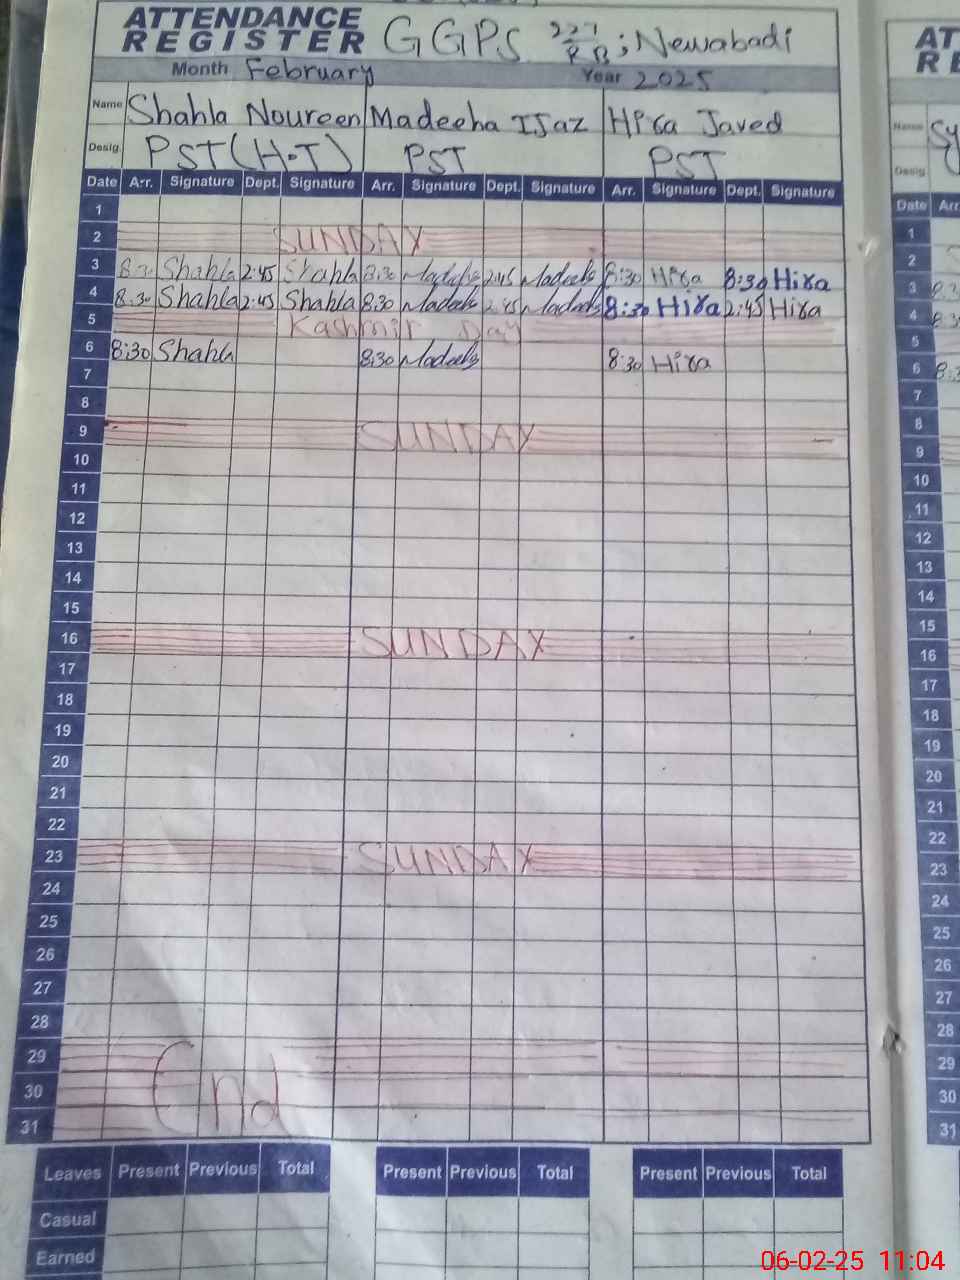 ATTENDANCE
REGISTER GGPS 227 RB; Newabadi
Month February Year 2025
Name Shahla Noureen Madeeha IJaz Hira Javed
Desig. PST(H.T) PST PST
Date Arr. Signature Dept. Signature Arr. Signature Dept. Signature Arr. Signature Dept. Signature
1
2 SUNDAY
3 8:30 Shahla 2:45 Shahla 8:30 Madeeha 2:45 Madeeha 8:30 Hira 8:30 Hira
4 8:30 Shahla 2:45 Shahla 8:30 Madeeha 2:45 Madeeha 8:30 Hira 2:45 Hira
5 Kashmir Day
6 8:30 Shahla 8:30 Madeeha 8:30 Hira
7
8
9 SUNDAY
10
11
12
13
14
15
16 SUNDAY
17
18
19
20
21
22
23 SUNDAY
24
25
26
27
28
29
30 End
31
Leaves Present Previous Total Present Previous Total Present Previous Total
Casual
Earned
AT
RE
Name Sy
Desig
Date Arr
1
2
3
4
5
6
7
8
9
10
11
12
13
14
15
16
17
18
19
20
21
22
23
24
25
26
27
28
29
30
31
06-02-25 11:04